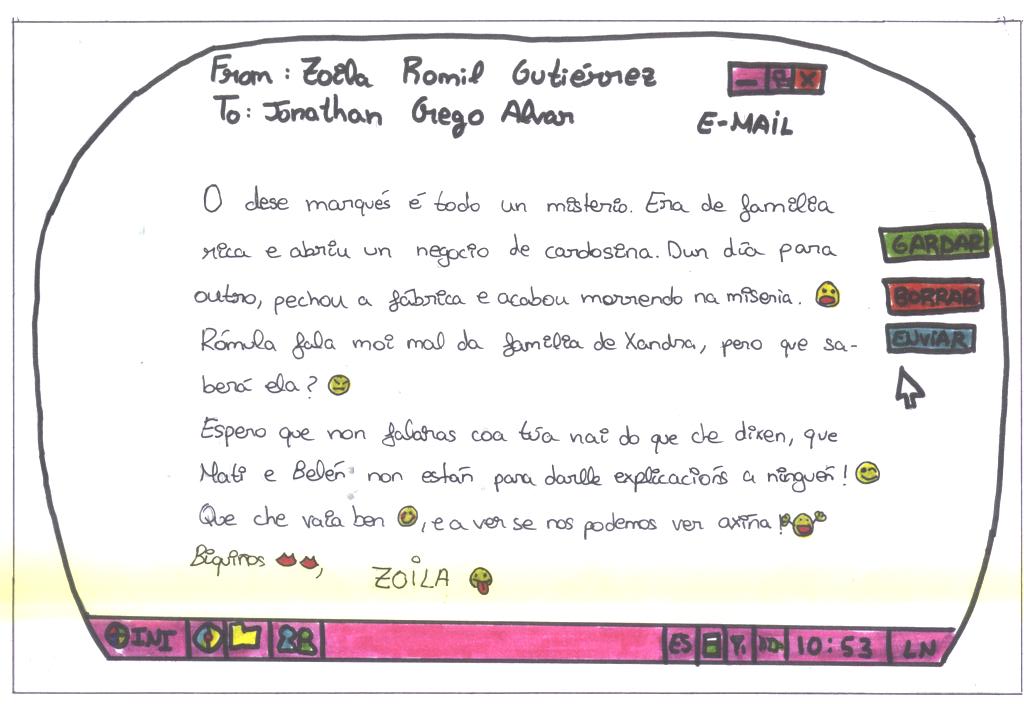 From: Zoila Romil Gutiérrez
To: Jonathan Grego Alvar
E-MAIL
O dese marqués é todo un misterio. Era de familia
rica e abriu un negocio de cardosina. Dun día para
outro, pechou a fábrica e acabou morrendo na miseria.
Rómula fala moi mal da familia de Xandra, pero que sa-
berá ela?
Espero que non falaras coa túa nai do que che dixen, que
Mati e Belén non están para darlle explicacións a ninguén!
Que che vaia ben, e a ver se nos podemos ver axiña!
Biquiños,
ZOILA
GARDAR
BORRAR
ENVIAR
INI
ES
10:53
LN